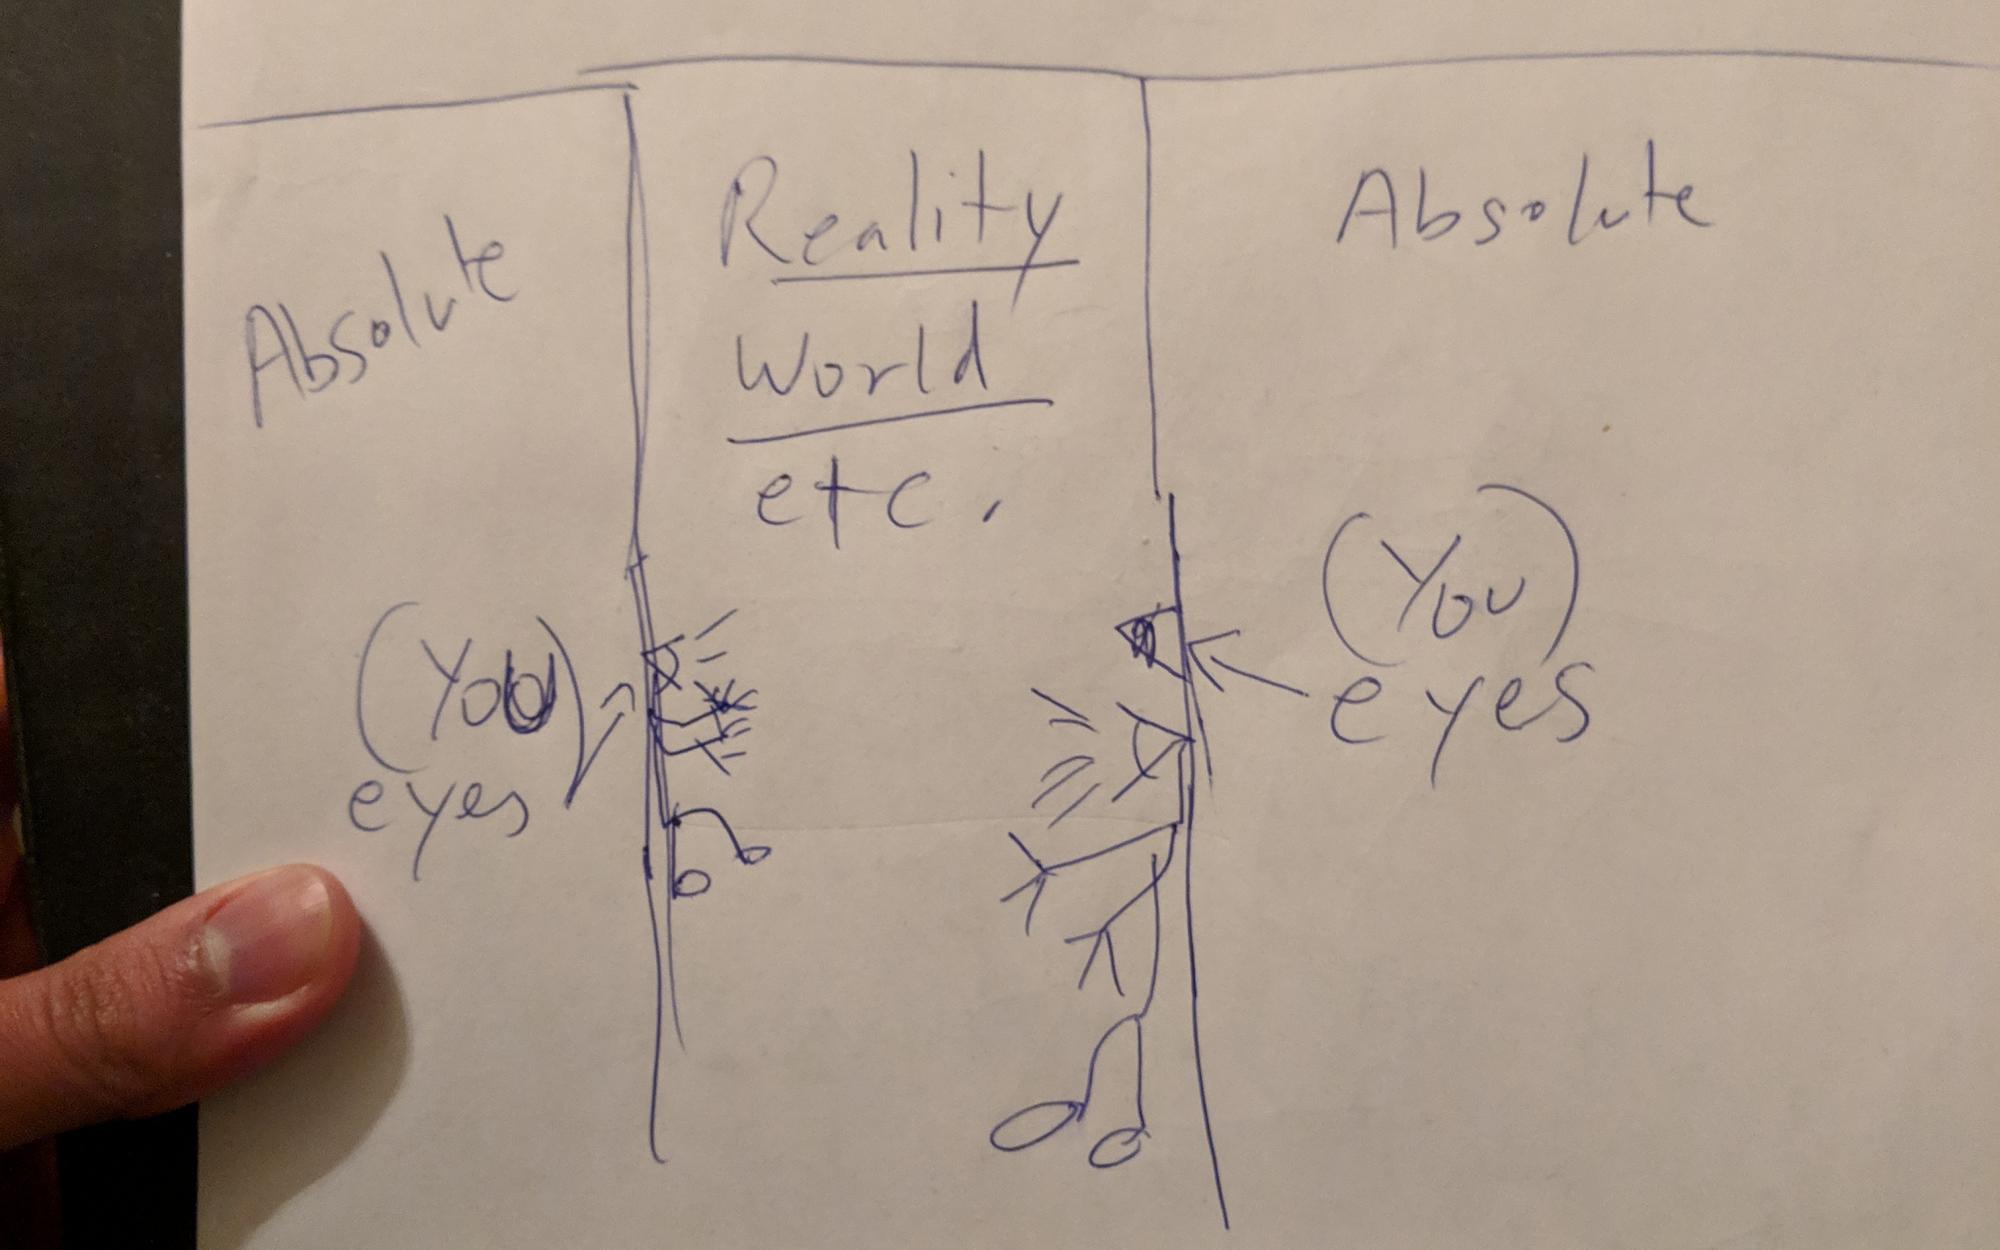 Absolute
(You)
eyes
Reality
World
etc.
Absolute
(You)
eyes